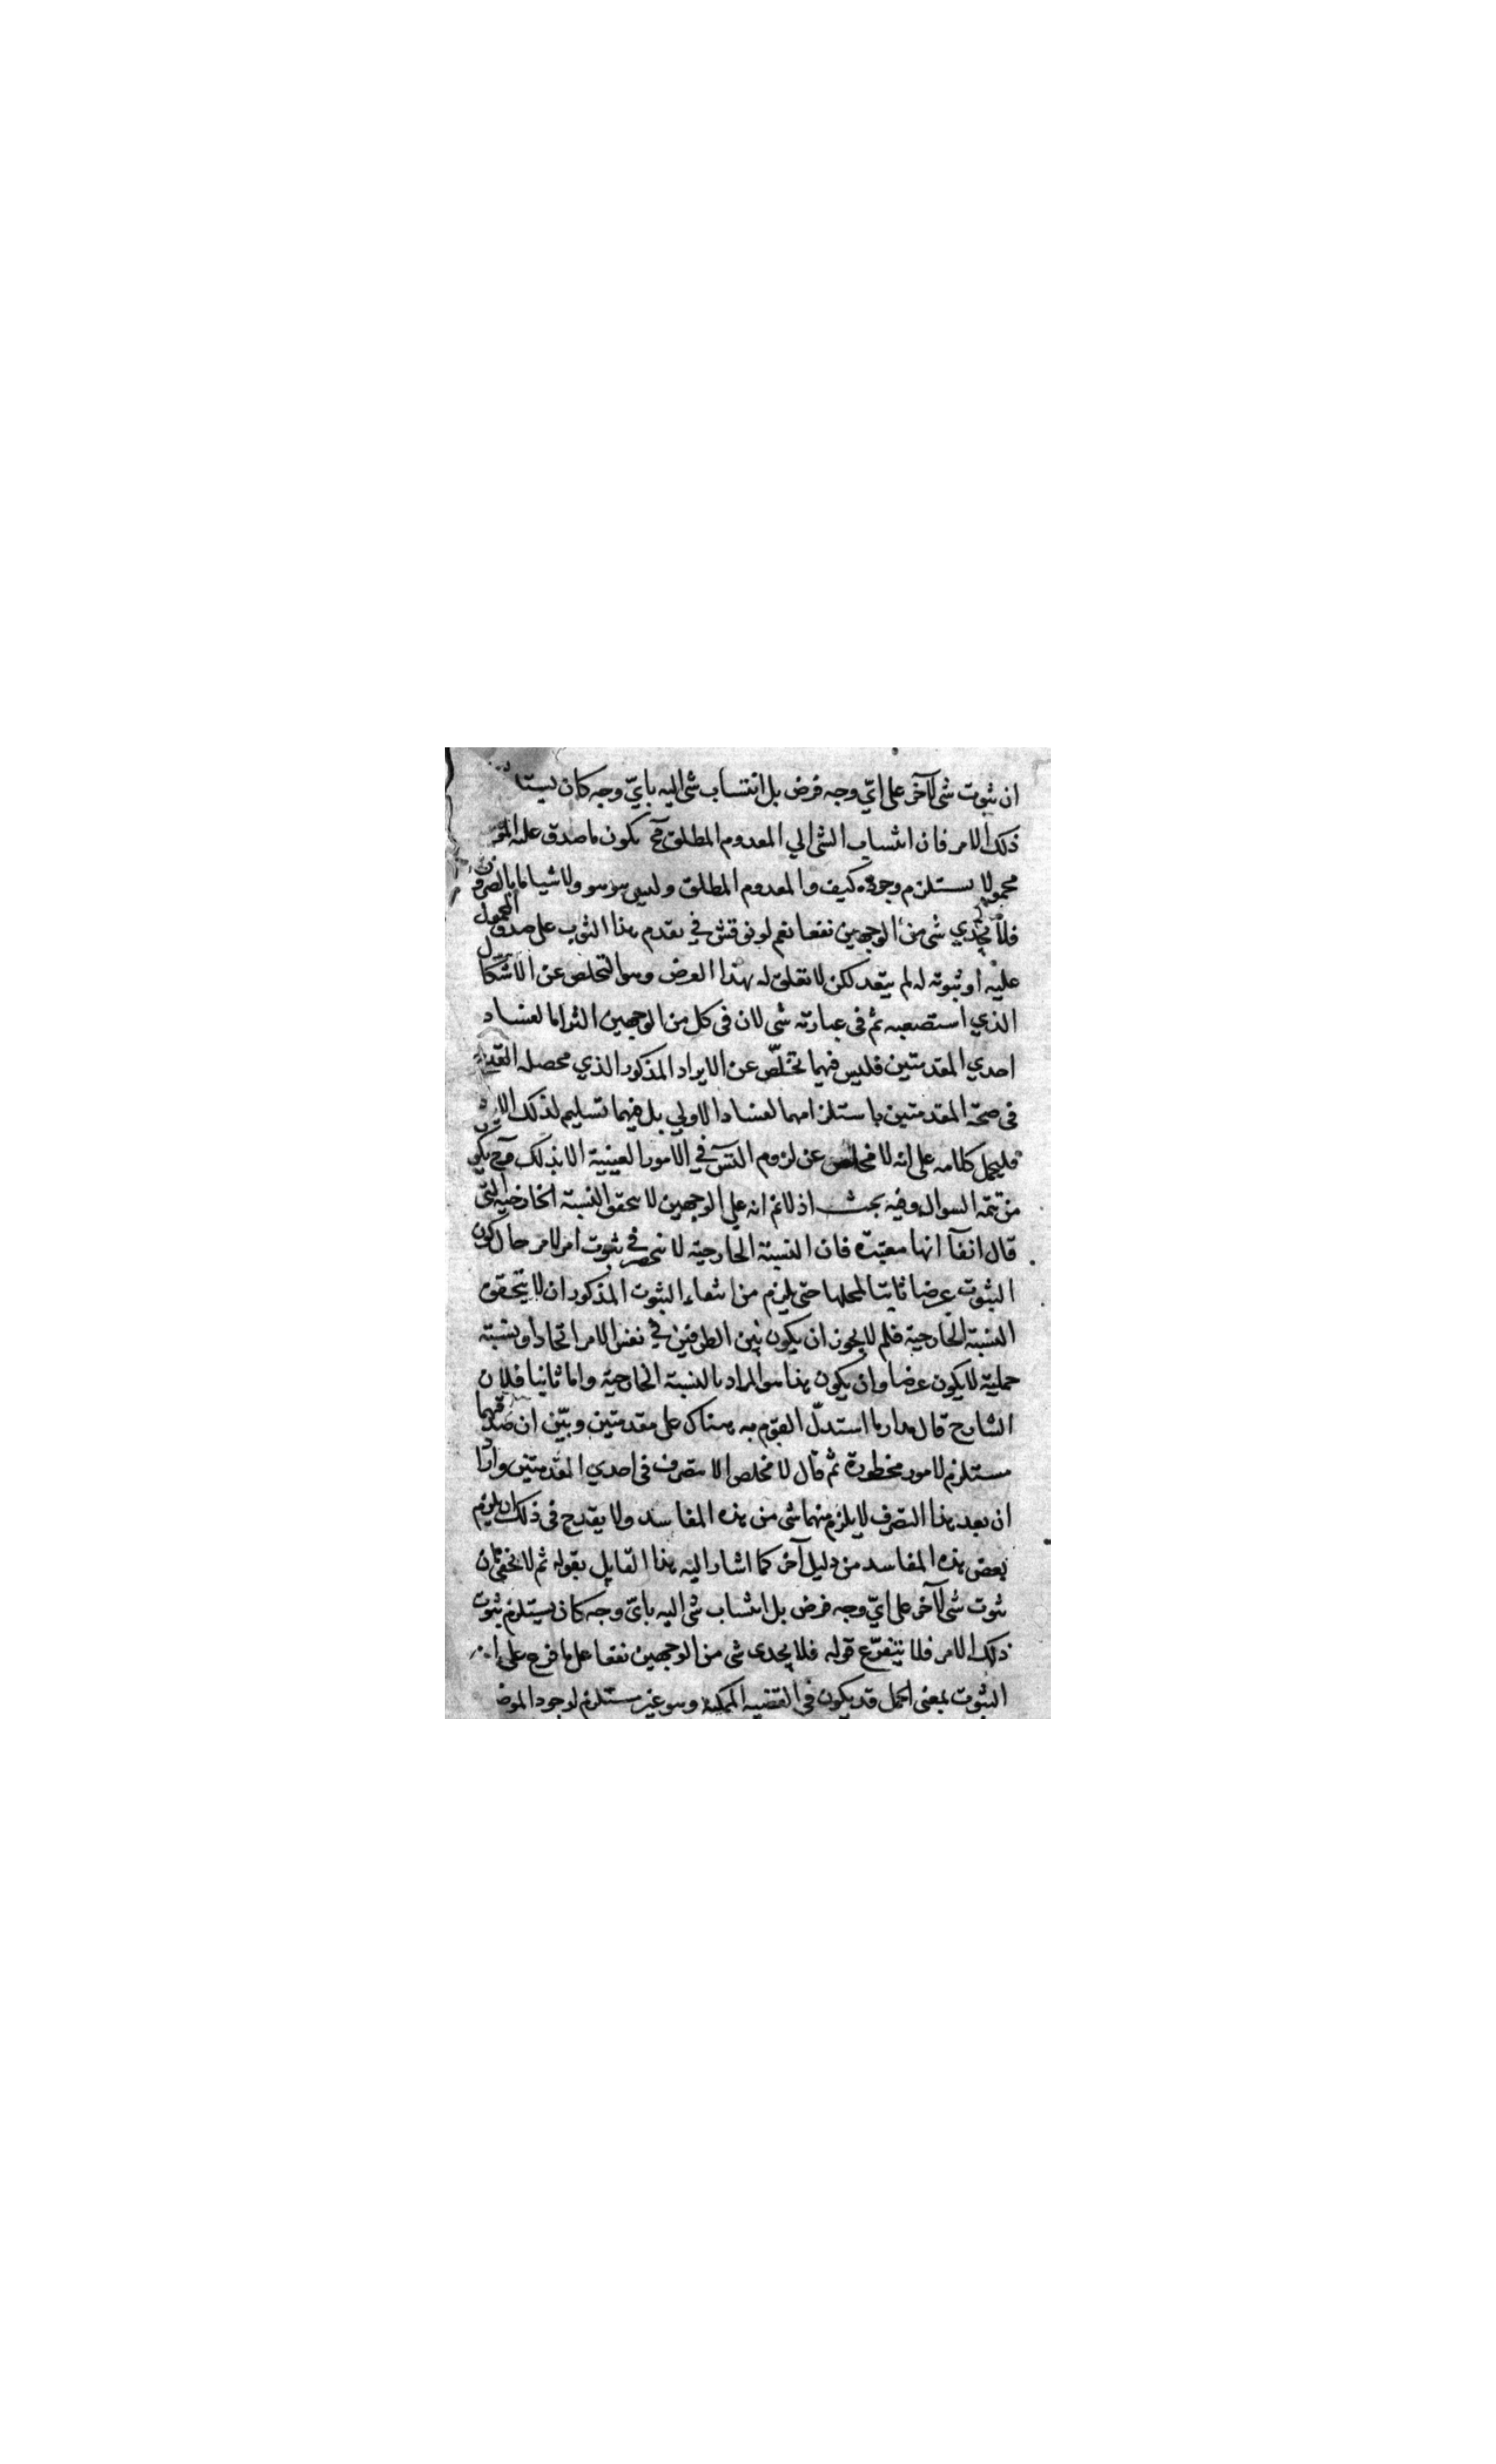 ان ثبوت شئ لآخر على ايّ وجه فرض بل انتساب شئ اليه بايّ وجه كان يستلـ
ذلك الامر فان انتساب الشئ الي المعدوم المطلق مح يكون ما صدق عليه
محمولا يستلزم وجوده كيف والمعدوم المطلق وليس هو هو ولا شيا ما بالضرورة
فلا يجدي شئ من الوجهين نفعا نعم لو نوقش في تقدم هذا الثبوت على صدق المحمول
عليه او ثبوته له لم يبعد لكن لا تعلق له بهذا الغرض وهو التخلص عن الاشكال
الذي استصعبه ثم في عبارته شئ لان في كل من الوجهين التزاما لفساد
احدي المقدمتين فليس فيهما تخلّص عن الايراد المذكور الذي محصله القدح
في صحة المقدمتين باستلزامهما لفساد الاولي بل فيهما تسليم لذلك
فليحمل كلامه على انه لا مخلص عن لزوم التس في الامور العينية الا بذلك وح يكون
من تتمة السوال وفيه بحث اذ لا نم انه على الوجهين لا يتحقق النسبة الخارجية التي
قال انفآ انها معتبرة فان النسبة الخارجية لا تنحصر في ثبوت امر لامر حال كون
الثبوت عرضا ثابتا لمحلها حتى يلزم من انتفاء الثبوت المذكور ان لا يتحقق
النسبة الخارجية فلم لا يجوز ان يكون بين الطرفين في نفس الامر اتحاد او نسبة
حملية لا يكون عرضا وان يكون هذا هو المراد بالنسبة الخارجية واما ثانيا فلان
الشارح قال مدار ما استدلّ القوم به هناك على مقدمتين وبيّن ان صدقهما
مستلزم لامور محظورة ثم قال لا مخلص الا بتصرف في احدي المقدمتين واراد
ان بعد هذا التصرف لا يلزم منهما شئ من هذه المفاسد ولا يقدح في ذلك ان يلزم
بعض هذه المفاسد من دليل آخر كما اشار اليه هذا القايل بقوله ثم لا يخفى ان
ثبوت شئ لآخر على ايّ وجه فرض بل انتساب شئ اليه بايّ وجه كان يستلزم ثبوت
ذلك الامر فلا يتفرّع قوله فلا يجدى شئ من الوجهين نفعا على ما فرع على
الثبوت بمعنى الحمل قد يكون في القضيه الممكنة وهو غير مستلزم لوجود الموضـ